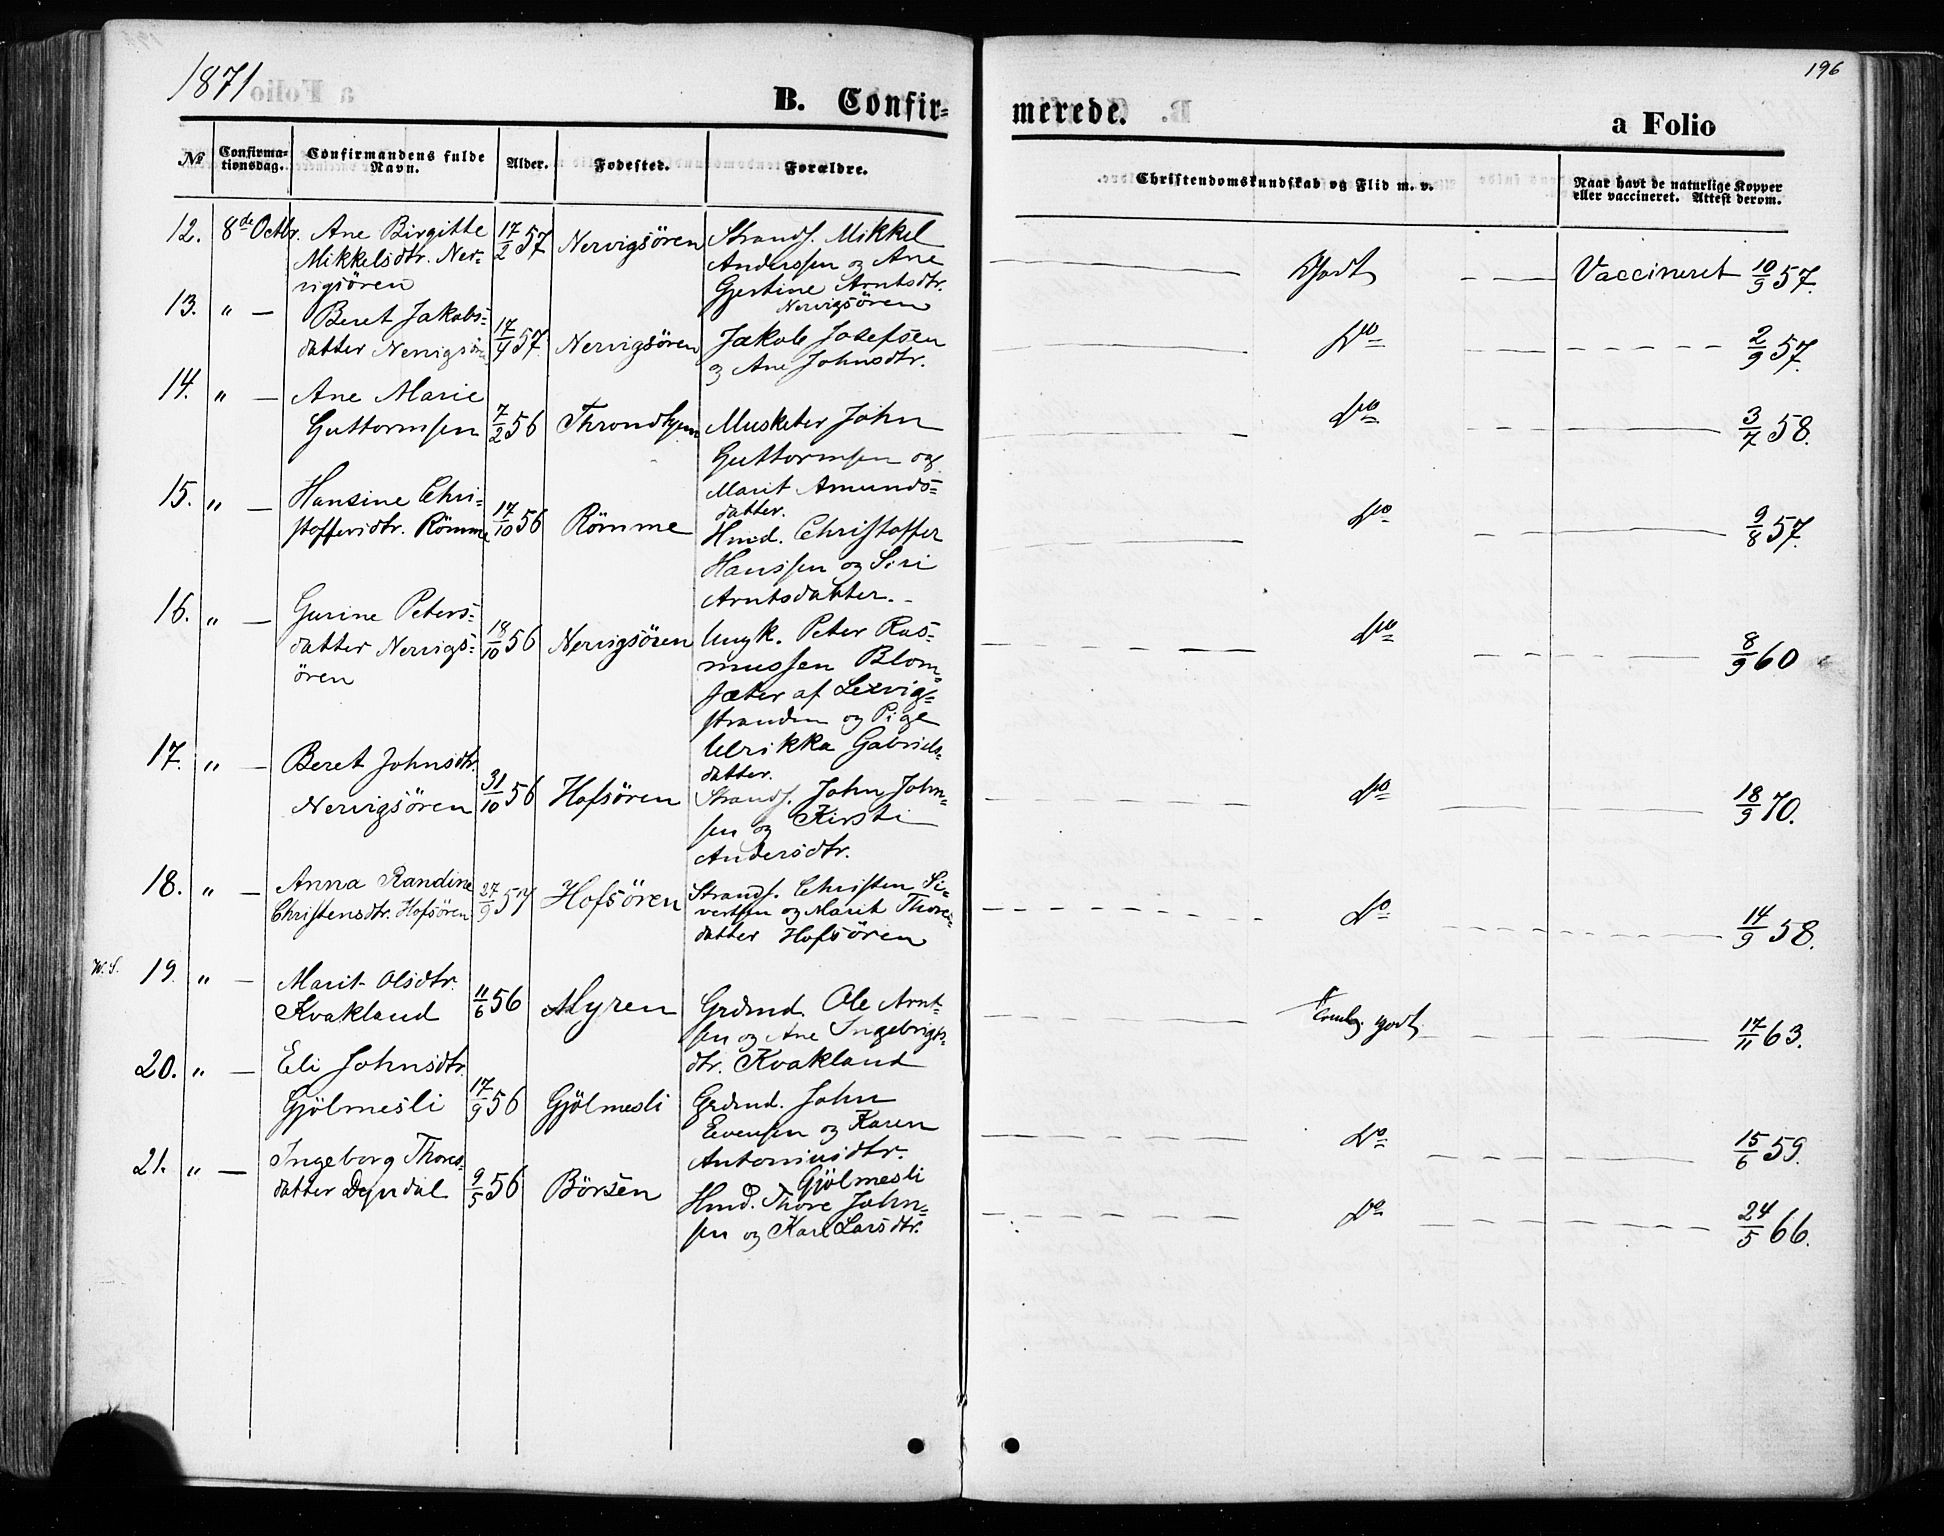 1871
196
B. Confir-
merede.
a Folio
№
Confirma-
tionsdag.
Confirmandens fulde
Navn.
Alder.
Fodested.
Forældre.
Christendomskundskab og Flid m. v.
Naar havt de naturlige Kopper
eller vaccineret. Attest derom.
12. 8de Octbr. Ane Birgitte 17/2 57 Nervigsören Strands. Mikkel
Mikkelsdtr. Ner- Anderssen og Ane
vigsören Gjertine Arntsdtr.
Nervigsören
Godt Vaccineret 10/9 57.
13. " — Beret Jakobs- 17/4 57. Nervigsören Jakob Josefsen
datter Nervigsören og Ane Johnsdtr.
Do 2/9 57.
14. " — Ane Marie
Guttormsen 7/2 56 Throndhjem Musketer John
Guttormsen og
Marit Amunds-
datter.
Do 3/7 58.
15. " — Hansine Chri-
stoffersdtr. Römme 17/10 56 Römme Hmd. Christoffer
Hanssen og Siri
Arntsdatter.
Do 9/8 57.
16. " — Gurine Peters-
datter Nervigs- 18/10 56 Nervigsören Ungk. Peter Ras-
ören mussen Blom-
sæter af Lexvig-
stranden og Pige
Ulrikka Gabriels-
datter.
Do 8/9 60
17. " — Beret Johnsdtr.
Nervigsören 31/10 56 Hofsören Strands. John John-
sen og Kirsti
Andersdtr.
Do 18/9 70.
18. " — Anna Randine
Christensdtr. Hofsören 27/9 57 Hofsören Strands. Christen Si-
vertsen og Marit Thores-
datter Hofsören
Do 14/9 58.
W. S. 19. " — Marit Olsdtr.
Kvakland 11/6 56 Myren Grdmd. Ole Arnt-
sen og Ane Ingebrigts-
dtr. Kvakland
godt 17/11 63.
20. " — Eli Johnsdtr.
Gjölmesli 17/9 56 Gjölmesli Grdmd. John
Evensen og Karen
Antoniusdtr.
Gjölmesli
Do 15/6 59.
21. " — Ingeborg Thores-
datter 9/5 56 Börsen Hmd. Thore John-
sen og Kari Larsdtr.
Do 24/5 66.